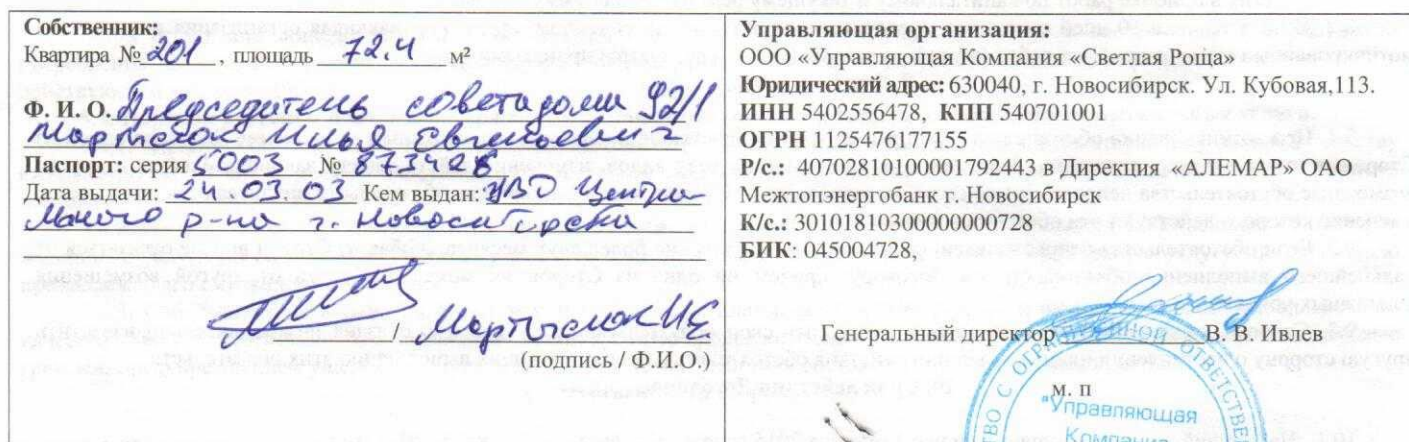 Собственник:
Квартира № 201 , площадь 72.4 м²
Ф. И. О. Председатель совета дома 92/1
Мартысюк Илья Евгеньевич
Паспорт: серия 5003 № 873428
Дата выдачи: 24.03.03 Кем выдан: УВД Центра-
льного р-на г. Новосибирска
Мартысюк ИЕ
(подпись / Ф.И.О.)
Управляющая организация:
ООО «Управляющая Компания «Светлая Роща»
Юридический адрес: 630040, г. Новосибирск. Ул. Кубовая,113.
ИНН 5402556478, КПП 540701001
ОГРН 1125476177155
Р/с.: 40702810100001792443 в Дирекция «АЛЕМАР» ОАО
Межтопэнергобанк г. Новосибирск
К/с.: 30101810300000000728
БИК: 045004728,
Генеральный директор В. В. Ивлев
м. п
"Управляющая
Компания